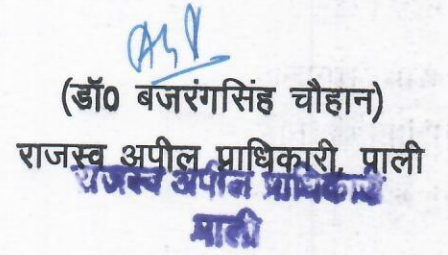 (डॉ0 बजरंगसिंह चौहान)
राजस्व अपील प्राधिकारी, पाली
राजस्व अपील प्राधिकारी
पाली